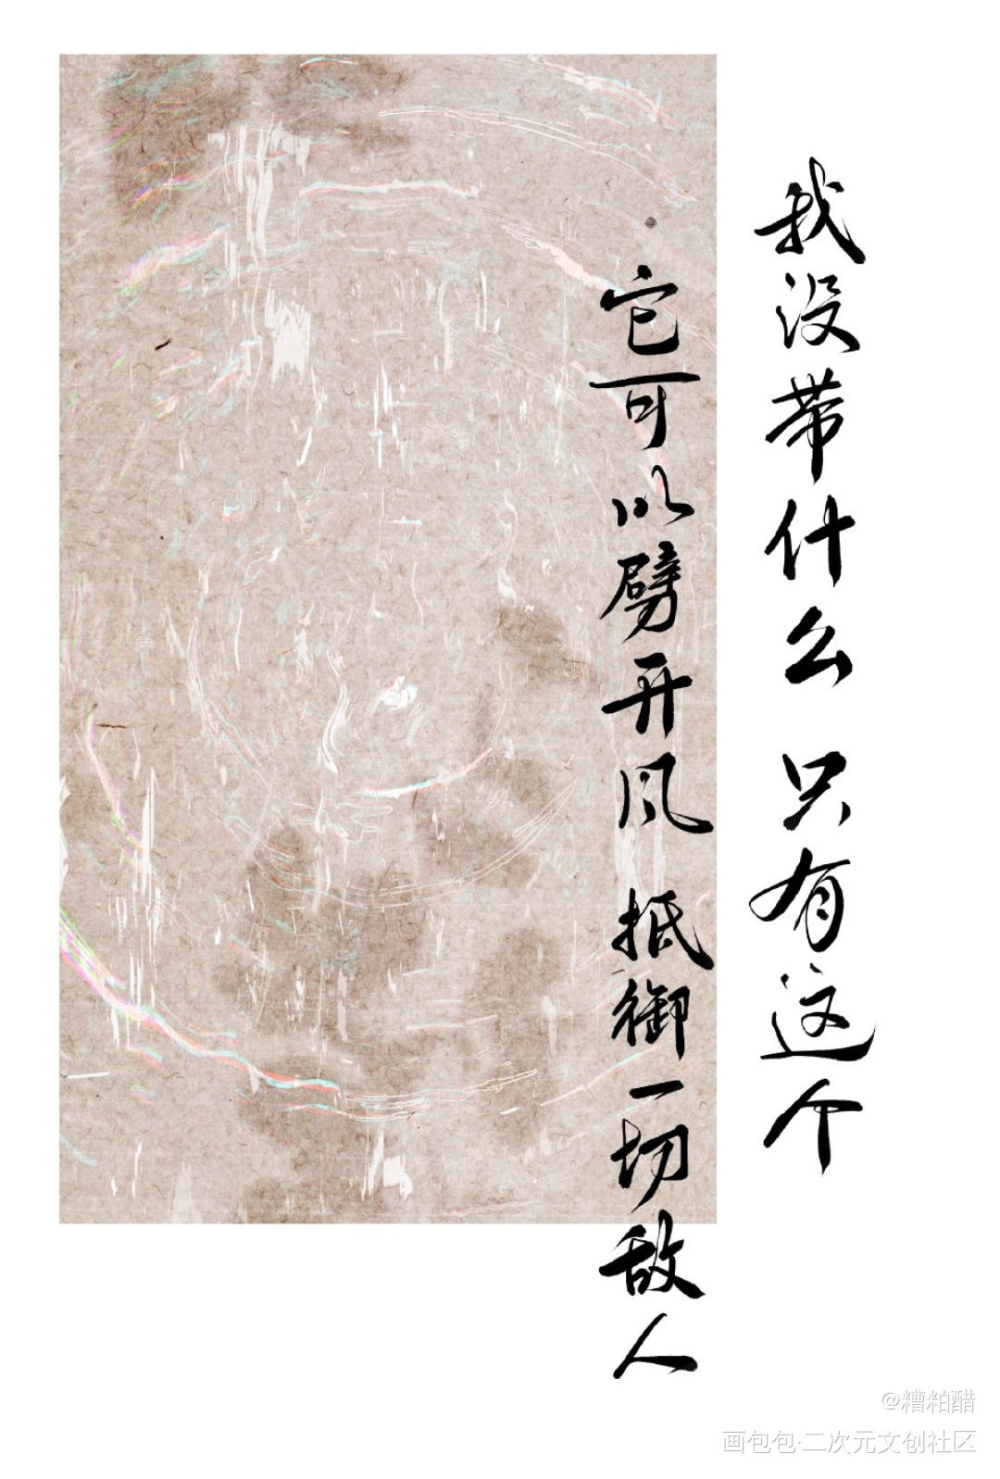 我没带什么 只有这个
它可以劈开风 抵御一切敌人
@糟粕醋
画包包·二次元文创社区